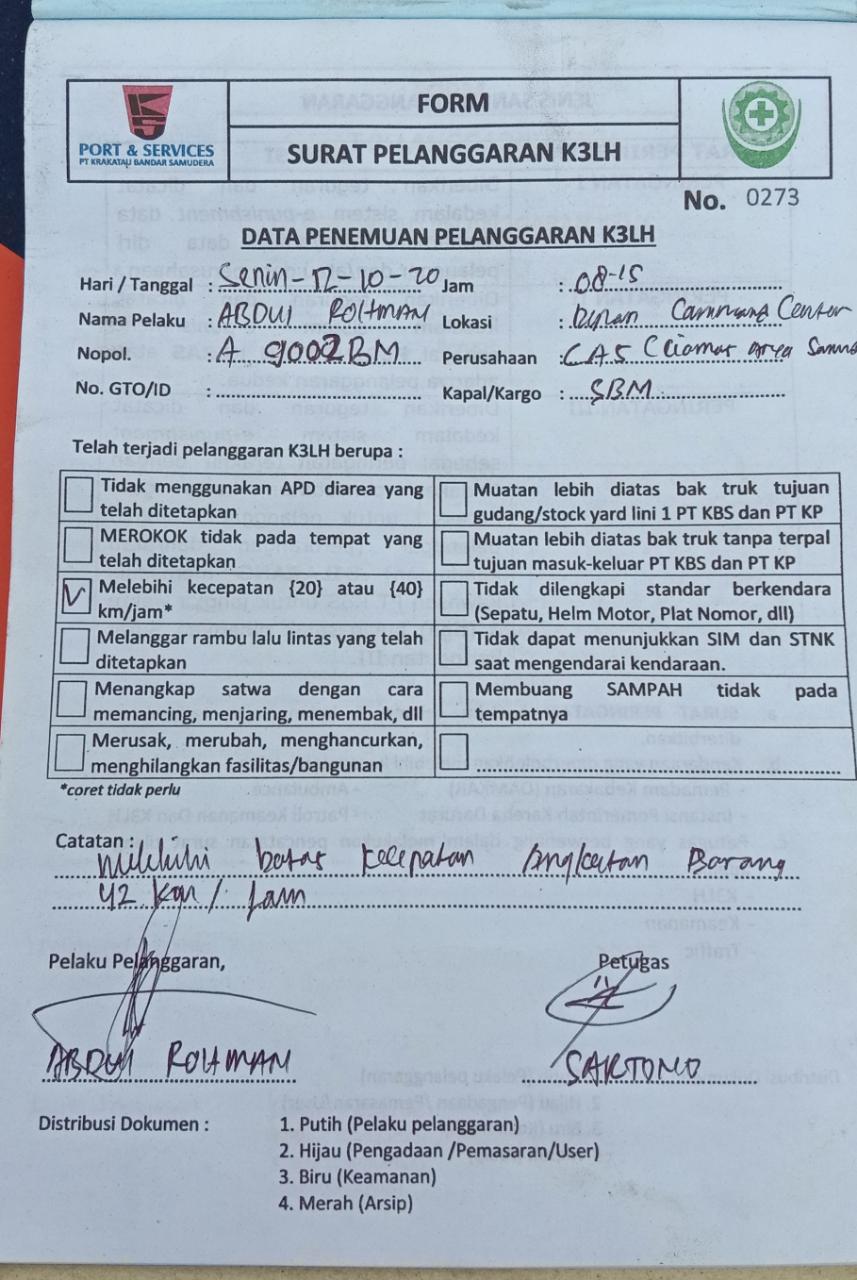 PORT & SERVICES
PT KRAKATAU BANDAR SAMUDERA
FORM
SURAT PELANGGARAN K3LH
No. 0273
DATA PENEMUAN PELANGGARAN K3LH
Hari / Tanggal : Senin-12-10-20 Jam : 08-15
Nama Pelaku : ABDUL ROHMAN Lokasi : Depan Command Center
Nopol. : A 9002 BM Perusahaan : CAS
No. GTO/ID : Kapal/Kargo : SBM
Telah terjadi pelanggaran K3LH berupa :
Tidak menggunakan APD diarea yang
telah ditetapkan
Muatan lebih diatas bak truk tujuan
gudang/stock yard lini 1 PT KBS dan PT KP
MEROKOK tidak pada tempat yang
telah ditetapkan
Muatan lebih diatas bak truk tanpa terpal
tujuan masuk-keluar PT KBS dan PT KP
Melebihi kecepatan {20} atau {40}
km/jam*
Tidak dilengkapi standar berkendara
(Sepatu, Helm Motor, Plat Nomor, dll)
Melanggar rambu lalu lintas yang telah
ditetapkan
Tidak dapat menunjukkan SIM dan STNK
saat mengendarai kendaraan.
Menangkap satwa dengan cara
memancing, menjaring, menembak, dll
Membuang SAMPAH tidak pada
tempatnya
Merusak, merubah, menghancurkan,
menghilangkan fasilitas/bangunan
*coret tidak perlu
Catatan :
batas kecepatan Angkutan Barang
42 Km / Jam
Pelaku Pelanggaran, Petugas
ABDUL ROHMAN SARTONO
Distribusi Dokumen : 1. Putih (Pelaku pelanggaran)
2. Hijau (Pengadaan /Pemasaran/User)
3. Biru (Keamanan)
4. Merah (Arsip)